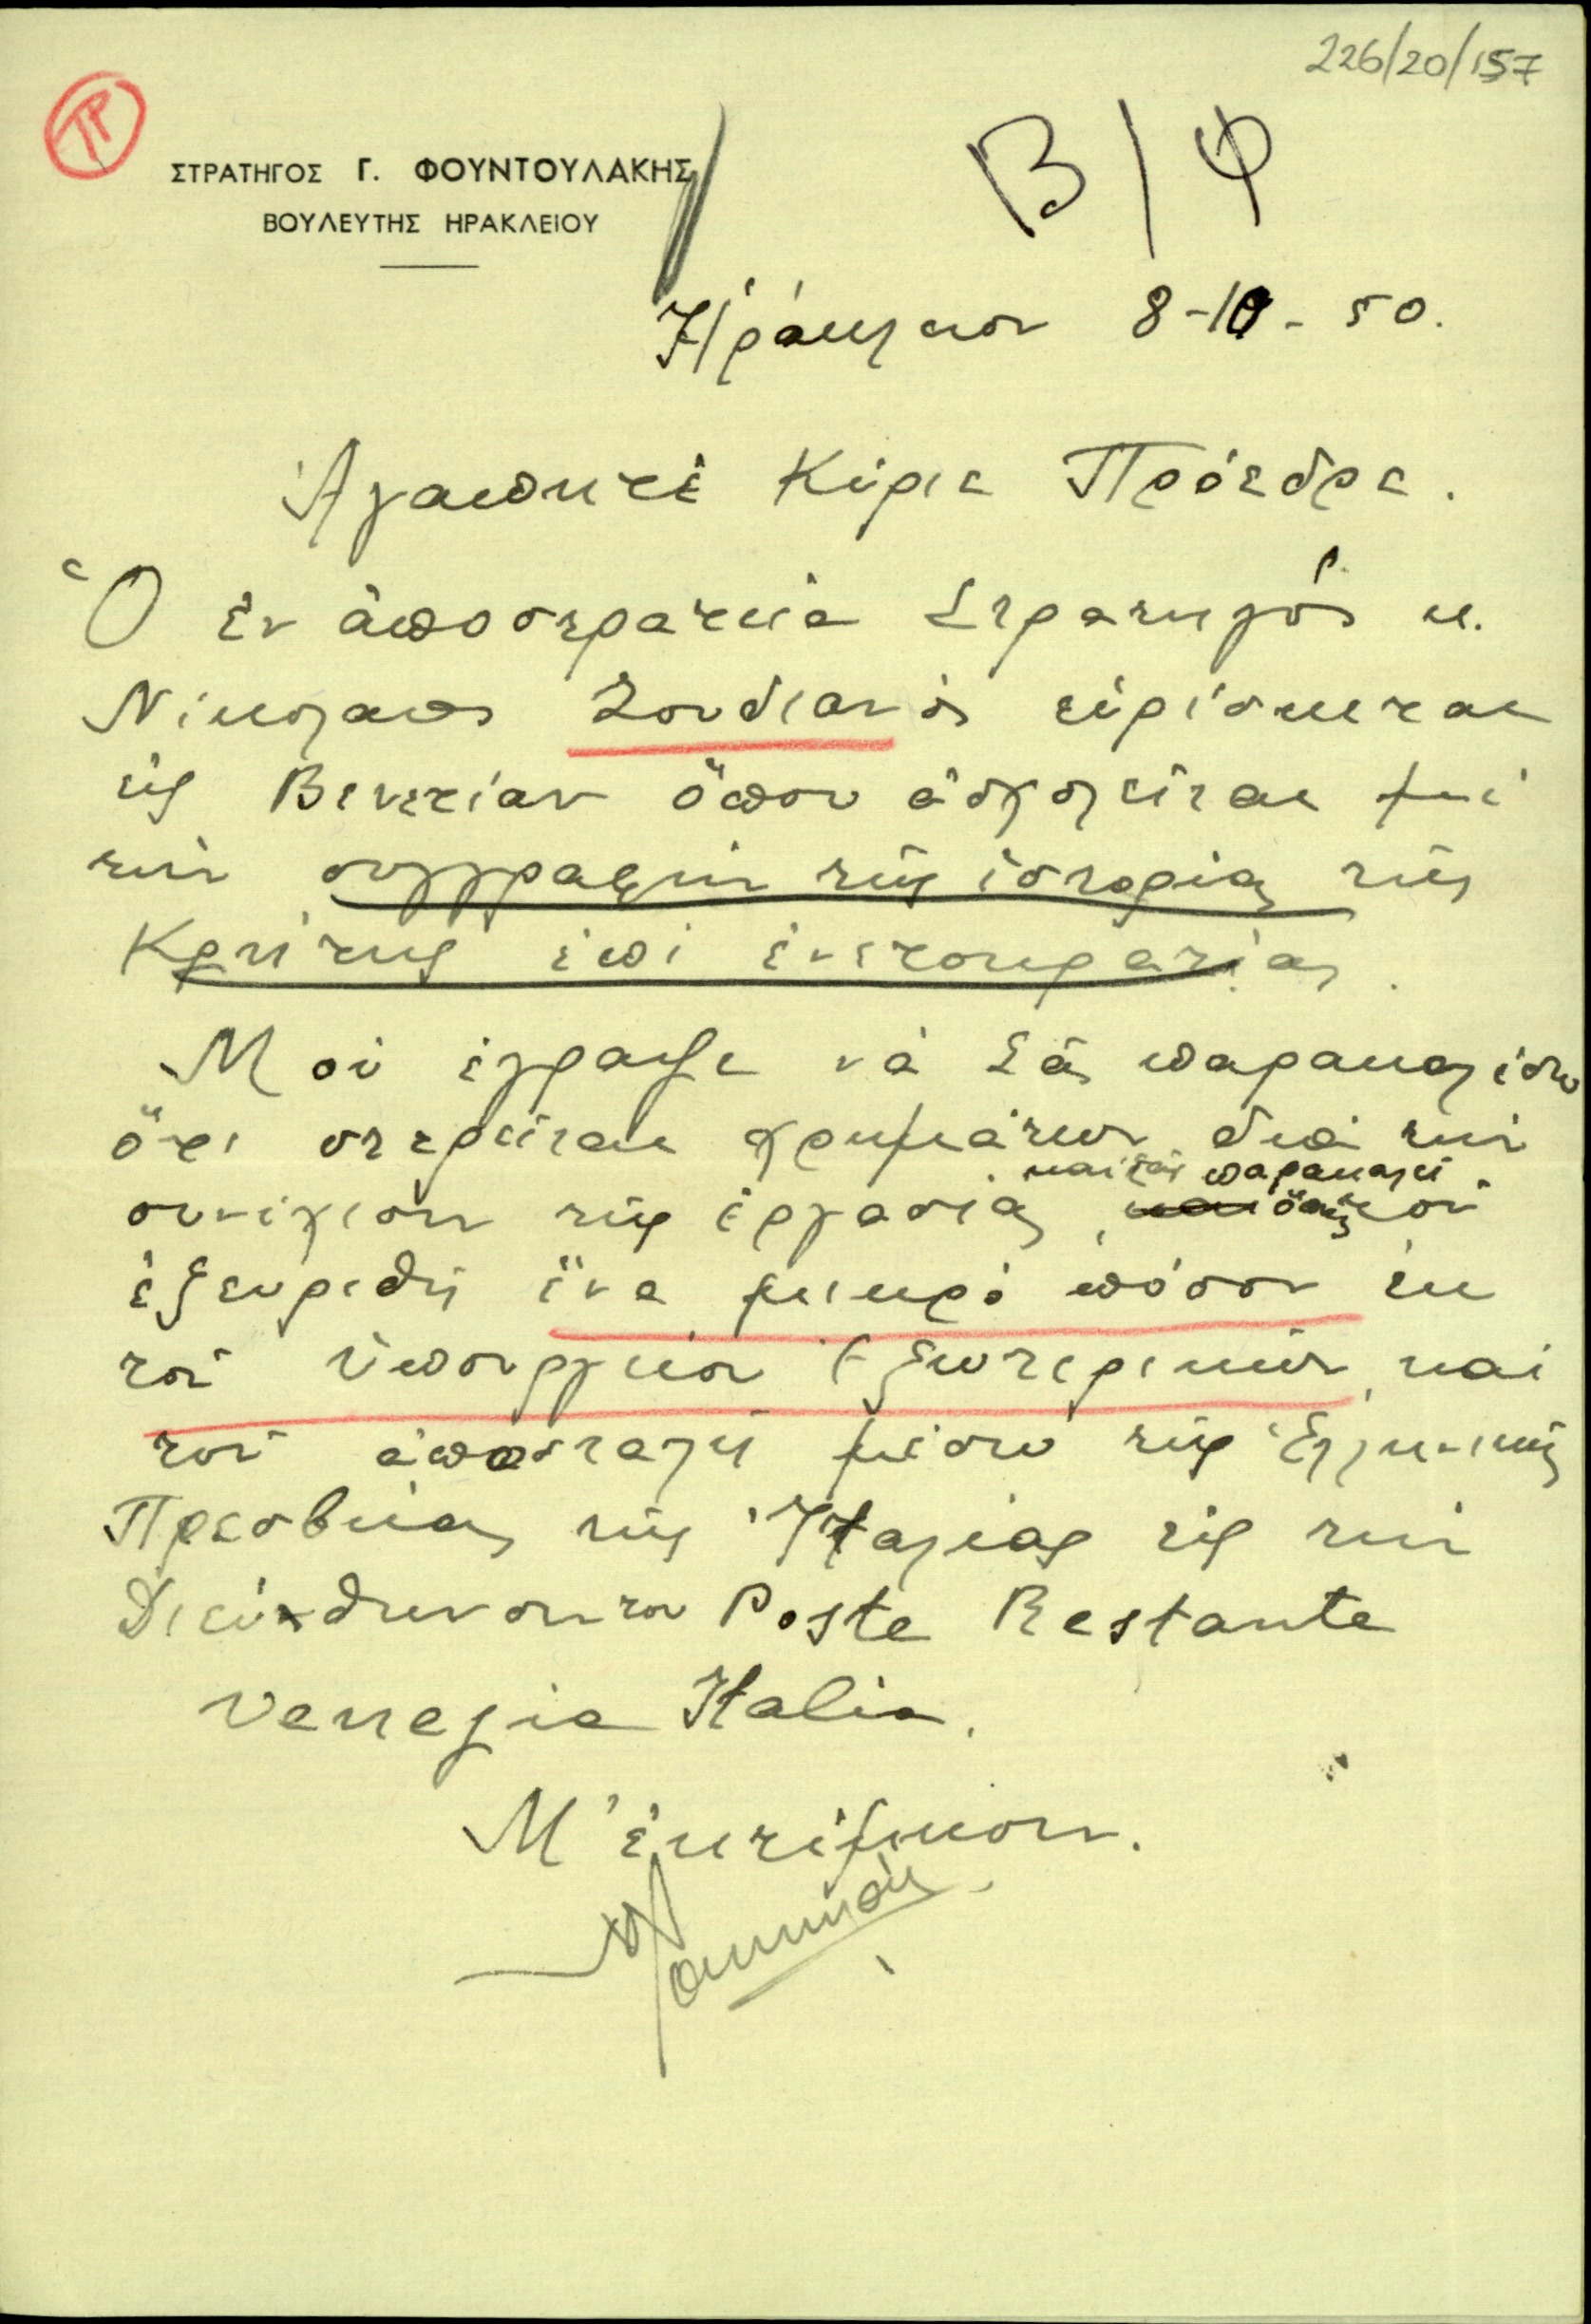 226/20/157
ΤΡ
ΣΤΡΑΤΗΓΟΣ Γ. ΦΟΥΝΤΟΥΛΑΚΗΣ
ΒΟΥΛΕΥΤΗΣ ΗΡΑΚΛΕΙΟΥ
Β/Φ
Ἡράκλειον 8-10-50.
Ἀγαπητέ Κύριε Πρόεδρε.
Ὁ ἐν ἀποστρατεία Στρατηγός κ.
Νικόλαος Σουδιανός εὑρίσκεται
εἰς Βενετίαν ὅπου ἀσχολεῖται μέ
τήν συγγραφήν τῆς ἱστορίας τῆς
Κρήτης ἐπί ἑνετοκρατίας.
Μοῦ ἔγραψε νά Σᾶς παρακαλέσω
ὅτι στερεῖται χρημάτων διά τήν
καί Σᾶς παρακαλεῖ
συνέχισιν τῆς ἐργασίας, ὅπως τοῦ
ἐξευρεθῆ ἕνα μικρό πόσον ἐκ
τοῦ Ὑπουργείου Ἐξωτερικῶν, καί
τοῦ ἀποσταλῆ μέσω τῆς Ἑλληνικῆς
Πρεσβείας τῆς Ἰταλίας εἰς τήν
Διεύθυνσιν του Poste Restante
Venezia Italia.
Μ' ἐκτίμησιν.